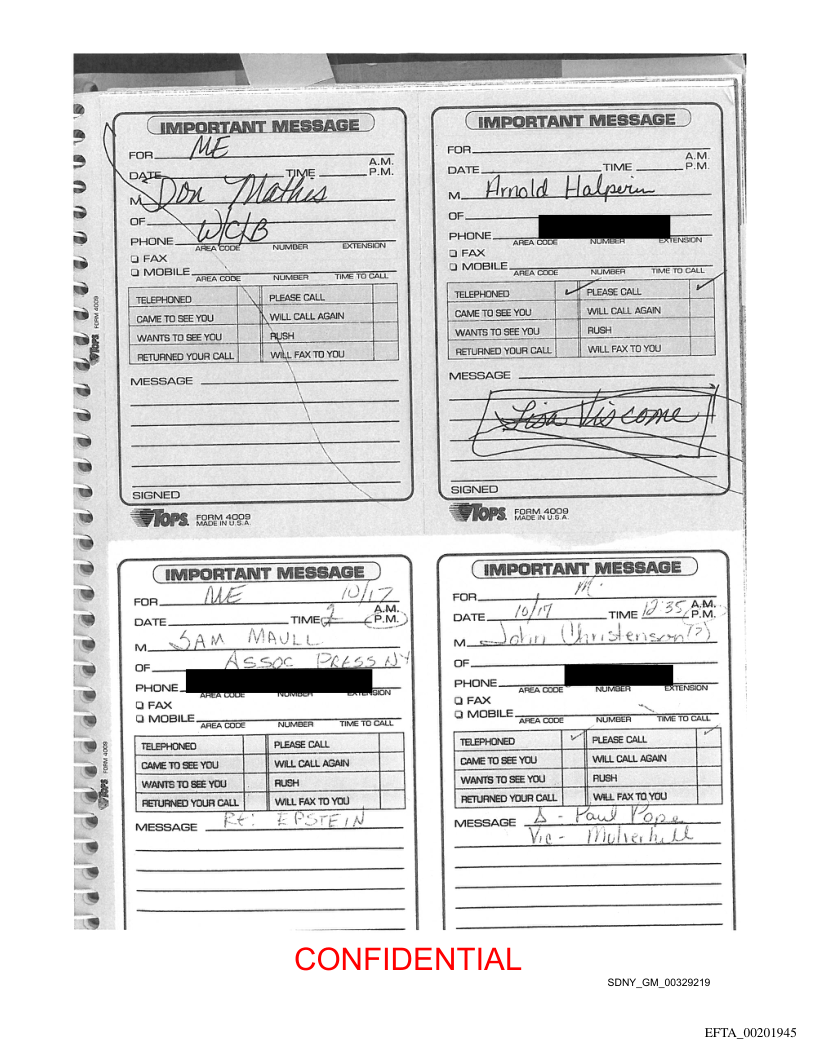 IMPORTANT MESSAGE
FOR ME
A.M.
DATE TIME P.M.
M Don Mathis
OF
PHONE W/C/B
AREA CODE NUMBER EXTENSION
FAX
MOBILE
AREA CODE NUMBER TIME TO CALL
TELEPHONED PLEASE CALL
CAME TO SEE YOU WILL CALL AGAIN
WANTS TO SEE YOU RUSH
RETURNED YOUR CALL WILL FAX TO YOU
MESSAGE
SIGNED
TOPS FORM 4009
MADE IN U.S.A.
TOPS FORM 4009
IMPORTANT MESSAGE
FOR
A.M.
DATE TIME P.M.
M Arnold Halperin
OF
PHONE
AREA CODE NUMBER EXTENSION
FAX
MOBILE
AREA CODE NUMBER TIME TO CALL
TELEPHONED ✓ PLEASE CALL ✓
CAME TO SEE YOU WILL CALL AGAIN
WANTS TO SEE YOU RUSH
RETURNED YOUR CALL WILL FAX TO YOU
MESSAGE
Lisa Viscome
SIGNED
TOPS FORM 4009
MADE IN U.S.A.
IMPORTANT MESSAGE
FOR ME 10/17
A.M.
DATE TIME 2 P.M.
M SAM MAULL
OF ASSOC PRESS NY
PHONE
AREA CODE NUMBER EXTENSION
FAX
MOBILE
AREA CODE NUMBER TIME TO CALL
TELEPHONED PLEASE CALL
CAME TO SEE YOU WILL CALL AGAIN
WANTS TO SEE YOU RUSH
RETURNED YOUR CALL WILL FAX TO YOU
MESSAGE Re: EPSTEIN
TOPS FORM 4009
IMPORTANT MESSAGE
FOR M.
A.M.
DATE 10/17 TIME 12:35 P.M.
M John Christenson (?)
OF
PHONE
AREA CODE NUMBER EXTENSION
FAX
MOBILE
AREA CODE NUMBER TIME TO CALL
TELEPHONED ✓ PLEASE CALL ✓
CAME TO SEE YOU WILL CALL AGAIN
WANTS TO SEE YOU RUSH
RETURNED YOUR CALL WILL FAX TO YOU
MESSAGE Δ - Paul Pope
Vic - Mulverhill
CONFIDENTIAL
SDNY_GM_00329219
EFTA_00201945